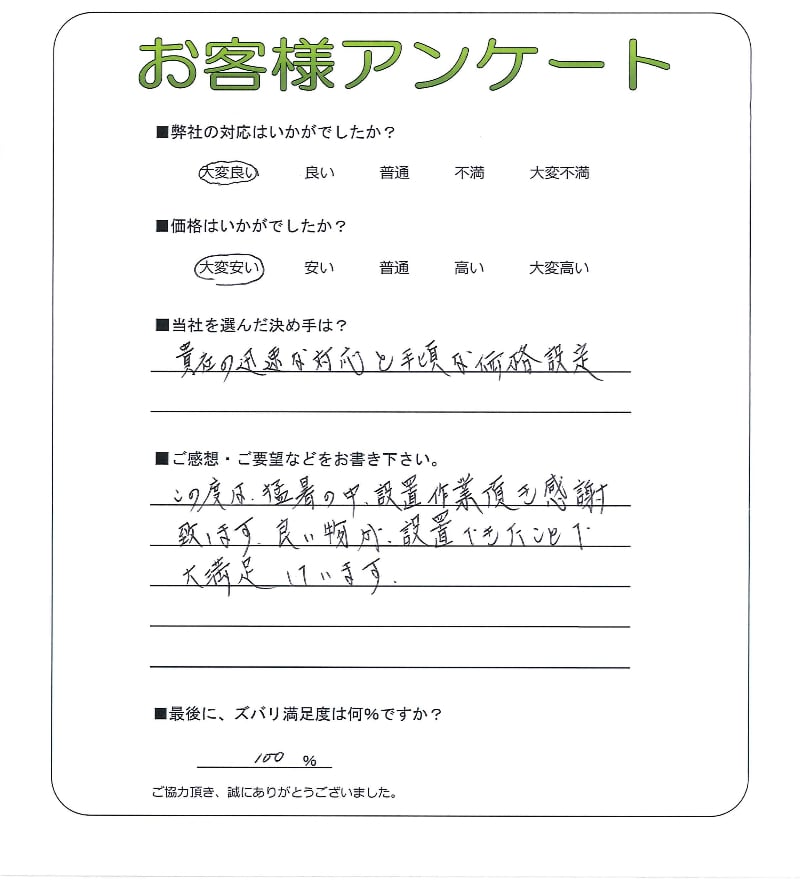 お客様アンケート
■弊社の対応はいかがでしたか？
大変良い 良い 普通 不満 大変不満
■価格はいかがでしたか？
大変安い 安い 普通 高い 大変高い
■当社を選んだ決め手は？
貴社の迅速な対応と手頃な価格設定
■ご感想・ご要望などをお書き下さい。
この度は、猛暑の中、設置作業頂き感謝
致します。良い物が、設置できたことで
大満足しています。
■最後に、ズバリ満足度は何％ですか？
100 ％
ご協力頂き、誠にありがとうございました。